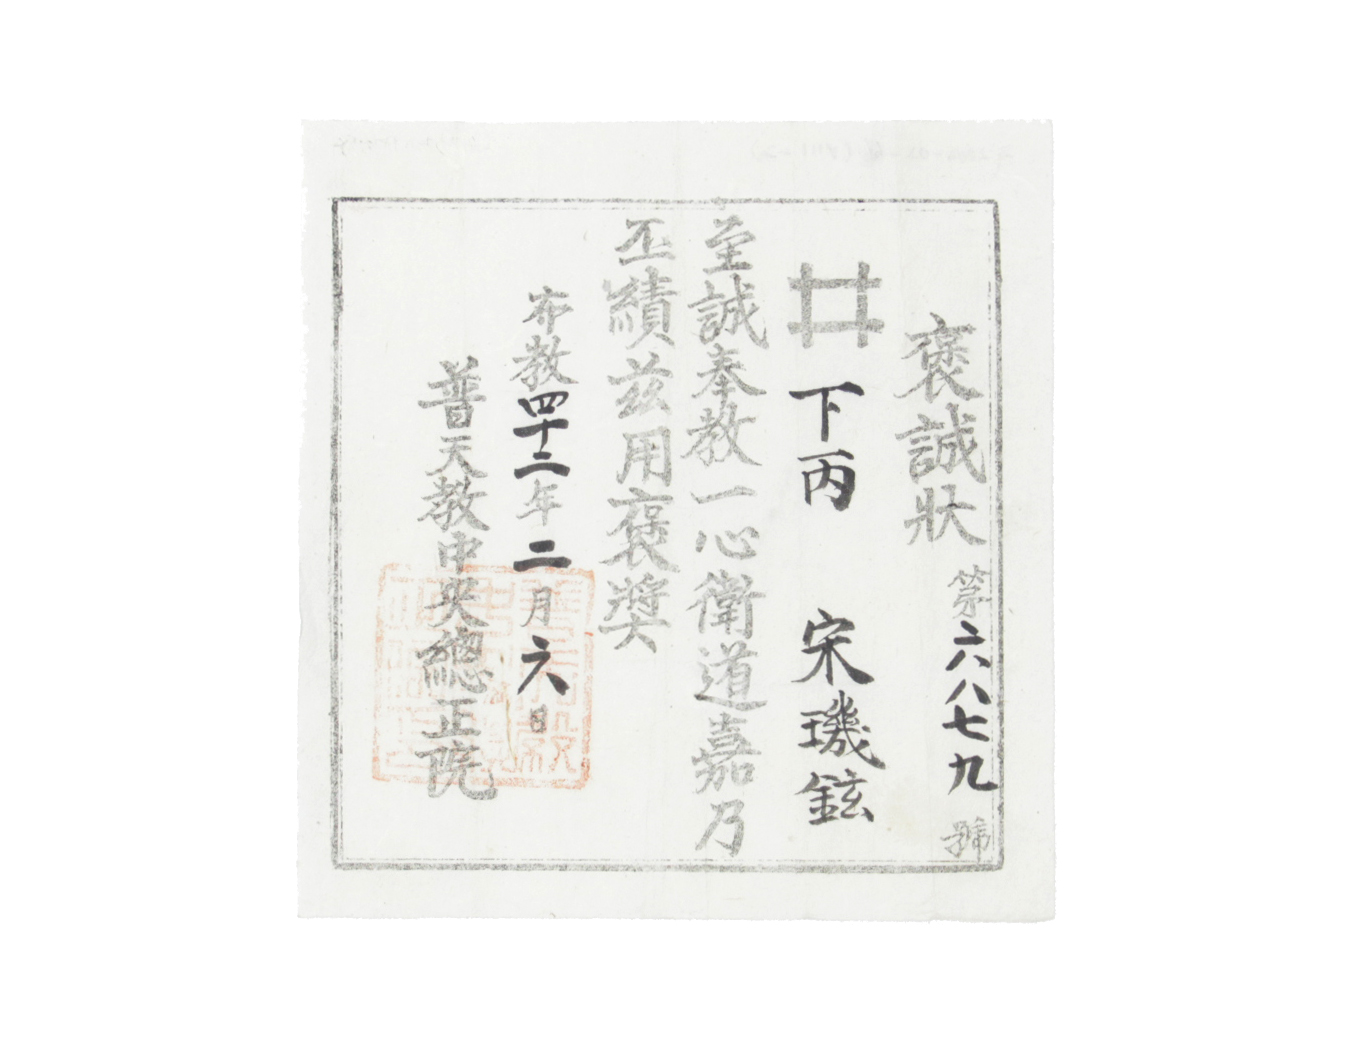 褒誠狀 第六八七九號
井 下丙 宋璣鉉
至誠奉教一心衛道嘉乃
丕績茲用褒獎
布教四十二年二月六日
普天教中央總正院